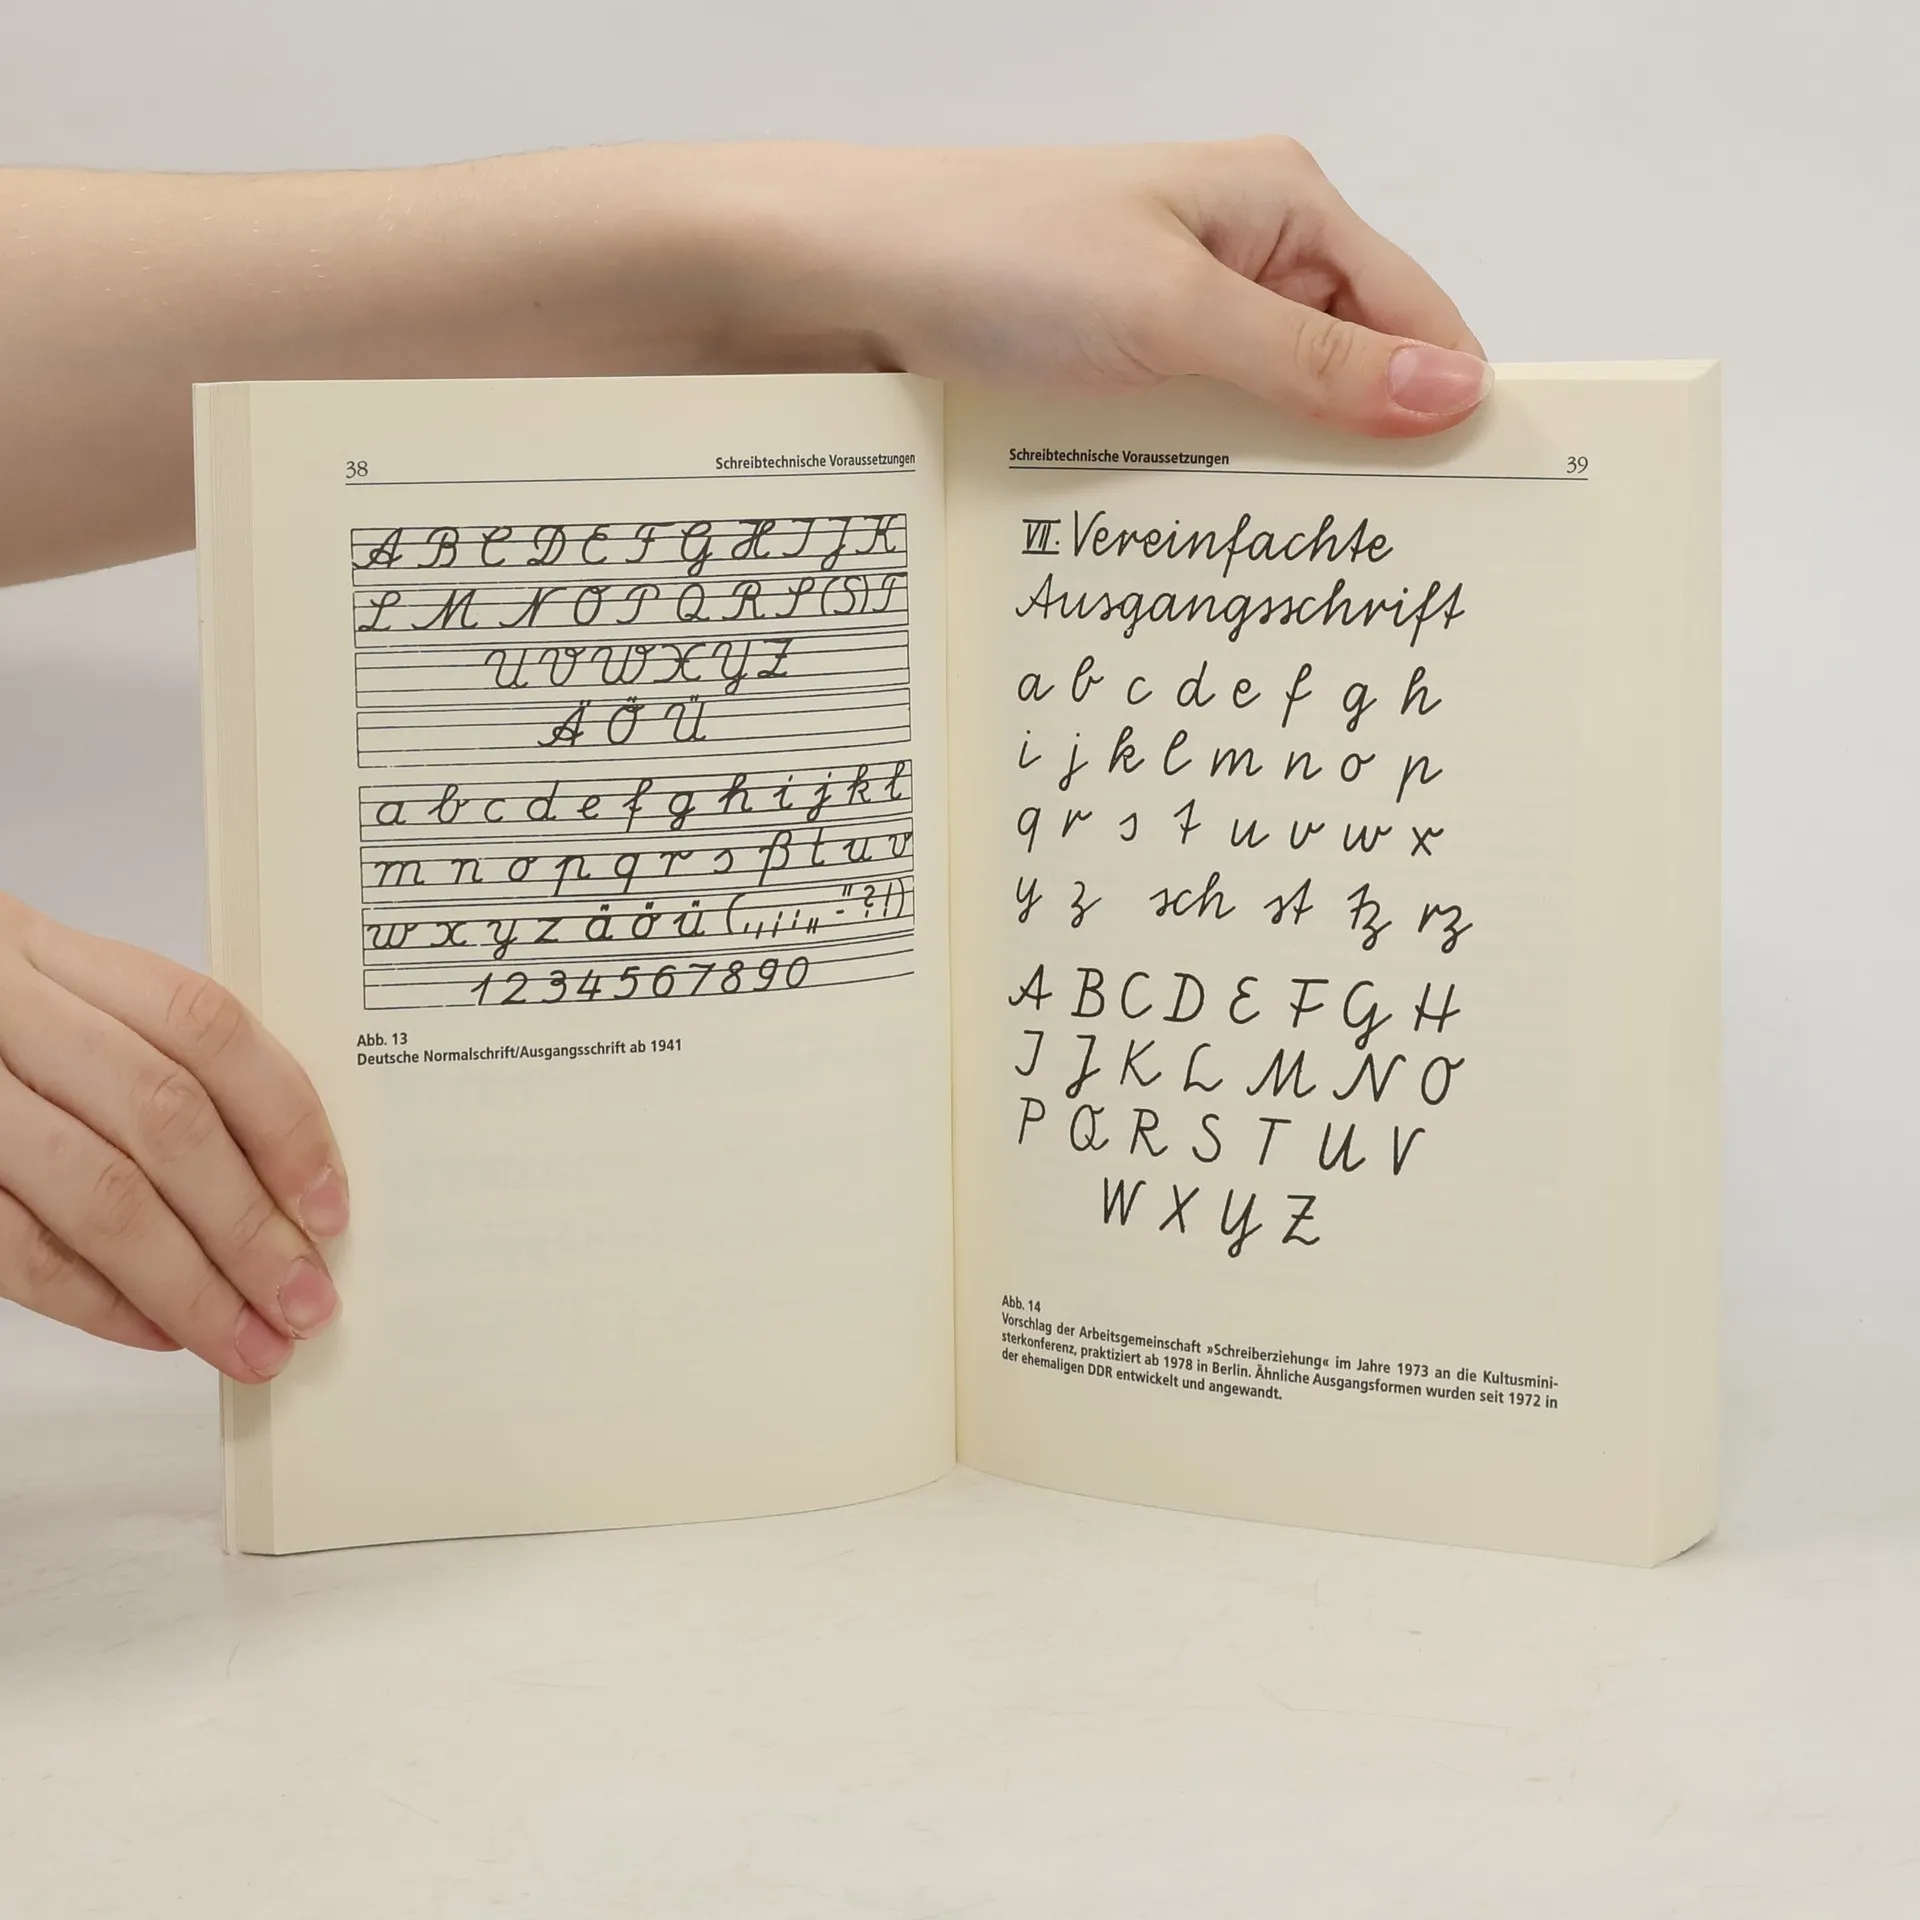 38
Schreibtechnische Voraussetzungen
A B C D E F G H I J K
L M N O P Q R S (S) T
U V W X Y Z
Ä Ö Ü
a b c d e f g h i j k l
m n o p q r s ß t u v
w x y z ä ö ü
1 2 3 4 5 6 7 8 9 0
Abb. 13
Deutsche Normalschrift/Ausgangsschrift ab 1941
Schreibtechnische Voraussetzungen
39
VII. Vereinfachte
Ausgangsschrift
a b c d e f g h
i j k l m n o p
q r s t u v w x
y z sch st tz rz
A B C D E F G H
I J K L M N O
P Q R S T U V
W X Y Z
Abb. 14
Vorschlag der Arbeitsgemeinschaft »Schreiberziehung« im Jahre 1973 an die Kultusmini-
sterkonferenz, praktiziert ab 1978 in Berlin. Ähnliche Ausgangsformen wurden seit 1972 in
der ehemaligen DDR entwickelt und angewandt.